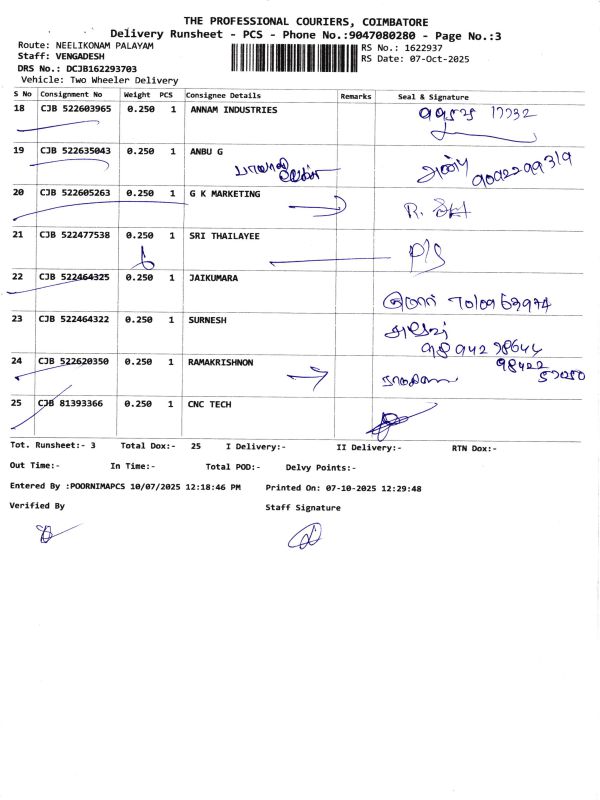 THE PROFESSIONAL COURIERS, COIMBATORE
Delivery Runsheet - PCS - Phone No.:9047080280 - Page No.:3
Route: NEELIKONAM PALAYAM
Staff: VENGADESH
DRS No.: DCJB162293703
Vehicle: Two Wheeler Delivery
RS No.: 1622937
RS Date: 07-Oct-2025
S No Consignment No Weight PCS Consignee Details Remarks Seal & Signature
18 CJB 522603965 0.250 1 ANNAM INDUSTRIES
19 CJB 522635043 0.250 1 ANBU G அன்பு 9092299319
20 CJB 522605263 0.250 1 G K MARKETING R.
21 CJB 522477538 0.250 1 SRI THAILAYEE P/S
22 CJB 522464325 0.250 1 JAIKUMARA
23 CJB 522464322 0.250 1 SURNESH
24 CJB 522620350 0.250 1 RAMAKRISHNON 98422
25 CJB 81393366 0.250 1 CNC TECH
Tot. Runsheet:- 3 Total Dox:- 25 I Delivery:- II Delivery:- RTN Dox:-
Out Time:- In Time:- Total POD:- Delvy Points:-
Entered By :POORNIMAPCS 10/07/2025 12:18:46 PM Printed On: 07-10-2025 12:29:48
Verified By Staff Signature